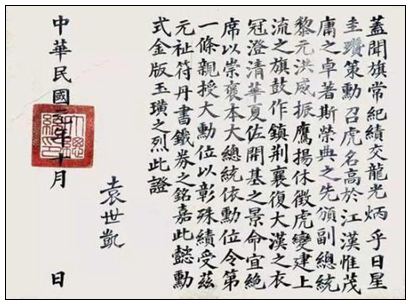 蓋聞旂常紀績交龍光炳乎日星
圭瓚策勳召虎名高於江漢惟茂
庸之卓著斯榮典之先頒副總統
黎元洪威振鷹揚休徵虎變建上
流之旗鼓作鎮荆襄復大漢之衣
冠澄清華夏佐開基之景命宜絕
席以崇褒本大總統依勳位令第
一條親授大勳位以彰殊績受茲
元祉符丹書鐵券之銘嘉此懿勳
式金版玉璜之烈此證
袁世凱
中華民國元年十月
日